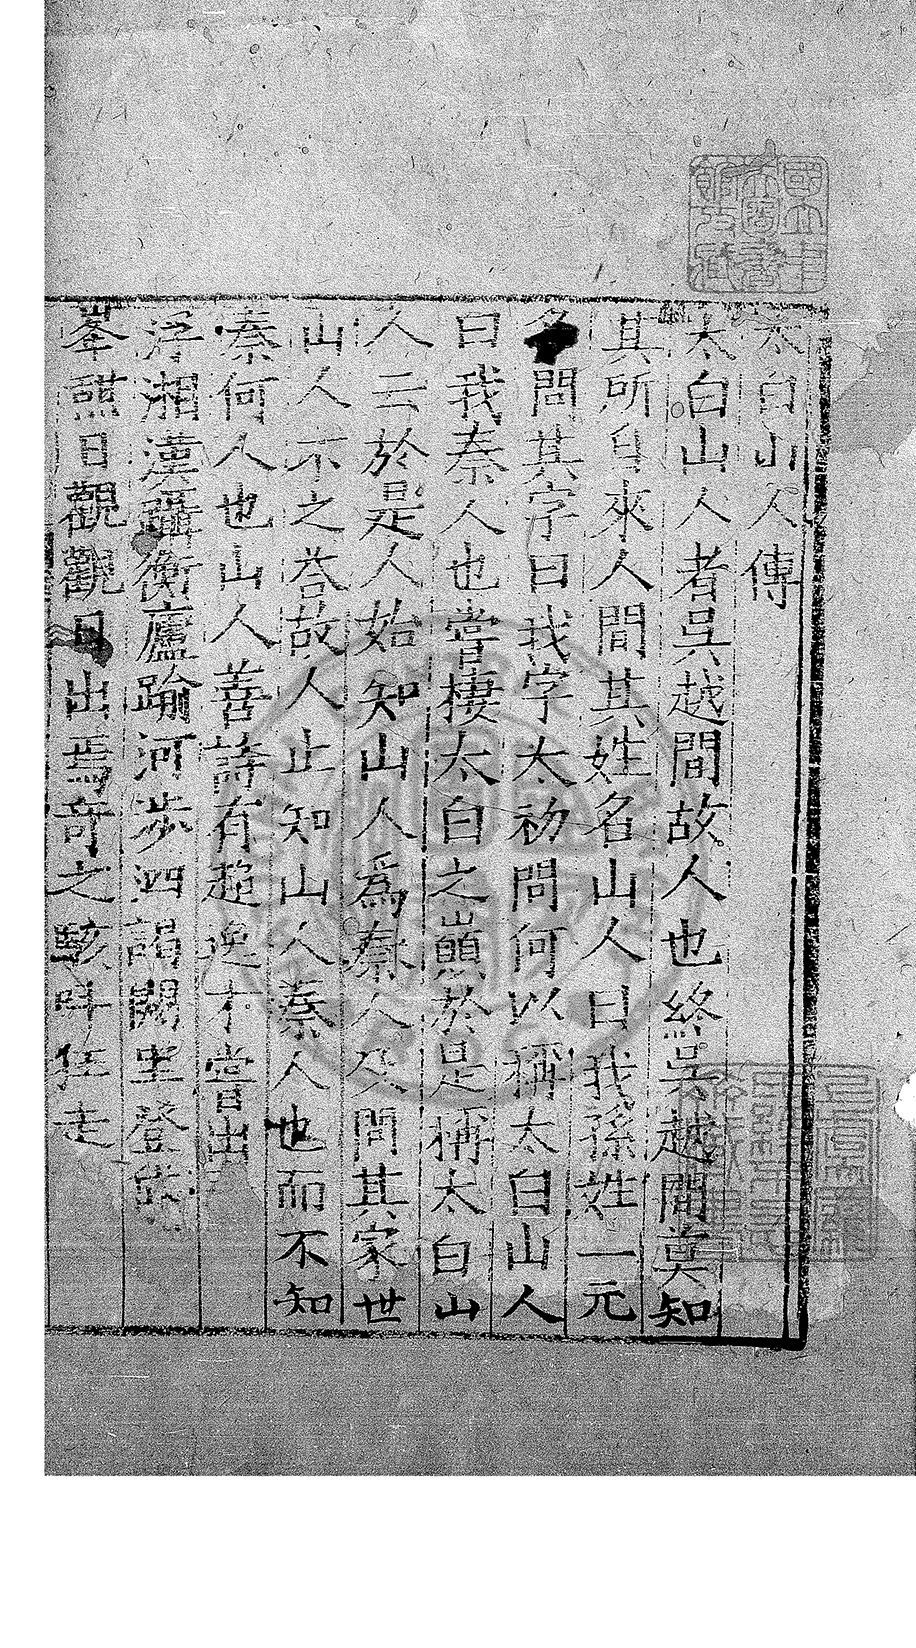 太白山人傳
太白山人者吳越間故人也終吳越間莫知
其所自來人間其姓名山人曰我孫姓一元
名問其字曰我字太初問何以稱太白山人
曰我秦人也嘗棲太白之巔於是稱太白山
人云於是人始知山人爲秦人及問其家世
山人不之答故人止知山人秦人也而不知
秦何人也山人善詩有超逸才嘗出
浮湘漢躡衡廬踰河步泗謁闕里登岱
峯熊日觀觀日出焉奇之駭呼狂走